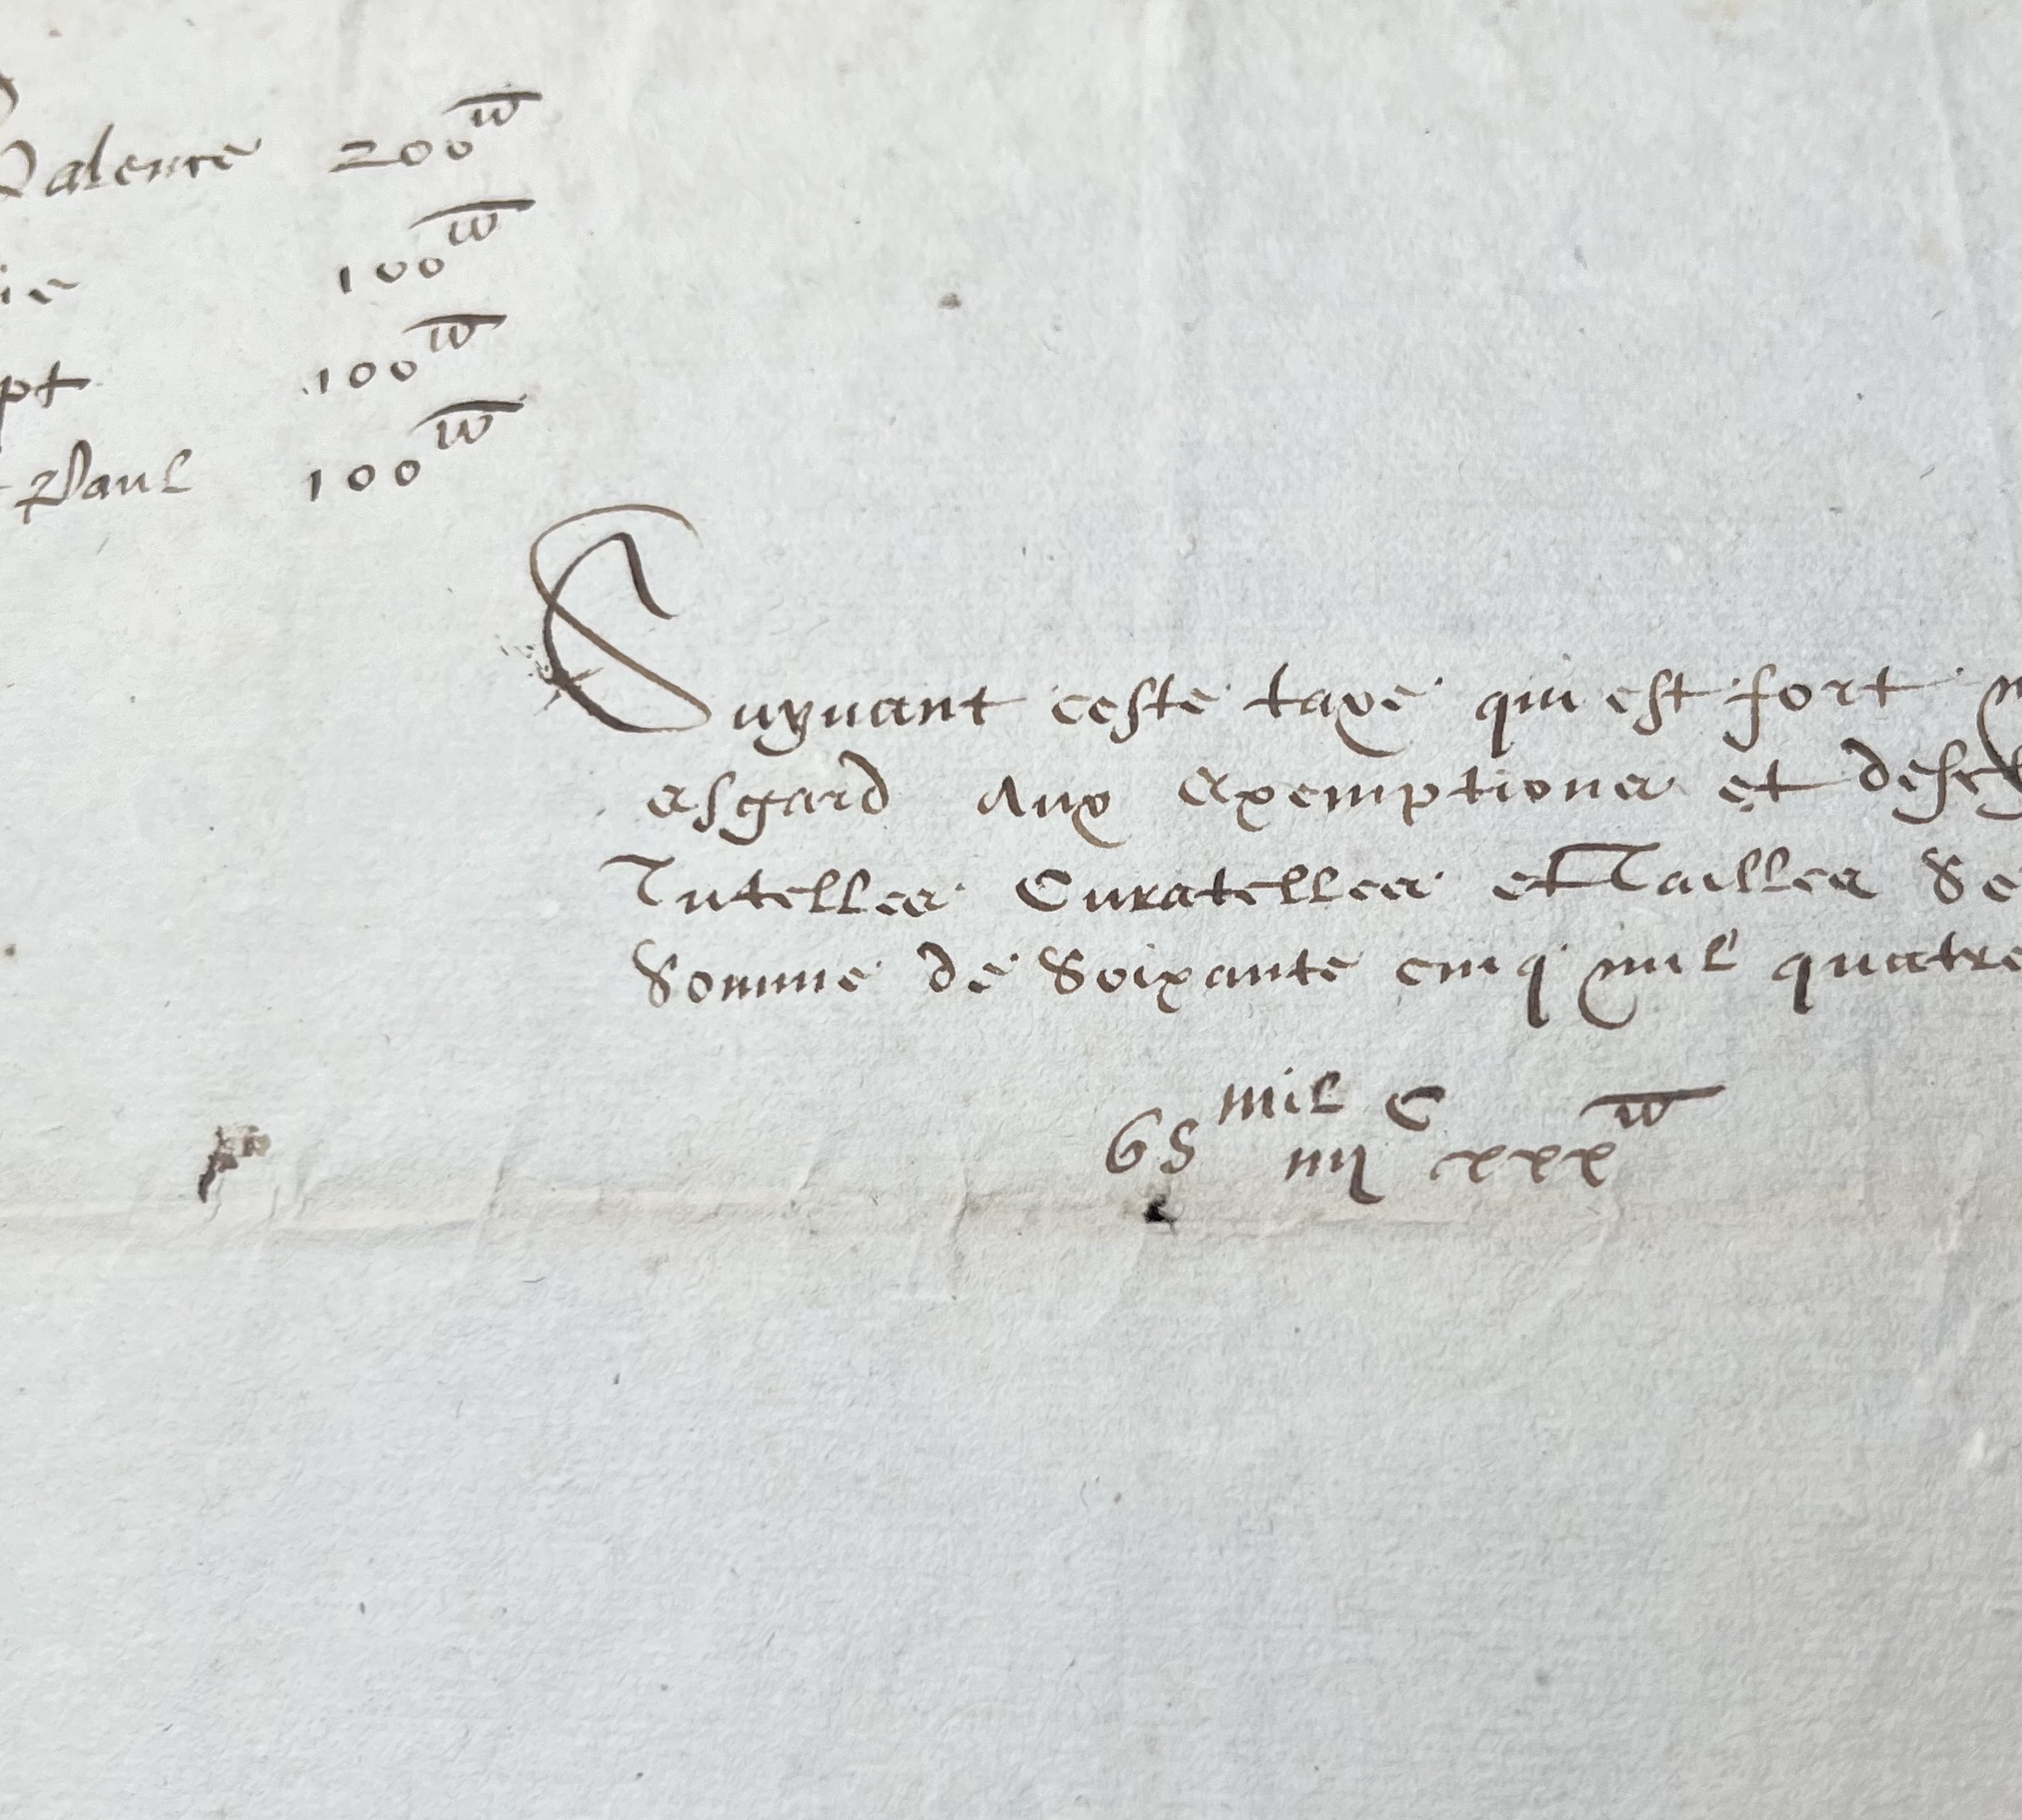 Valence 200
ie 100
pt 100
Paul 100
Suyuant ceste taxe qui est fort
esgard aux exemptions et
Tutelles Curatelles et Tailles Se
Somme de Soixante cinq mil quatre
65 mil iiij C xxx